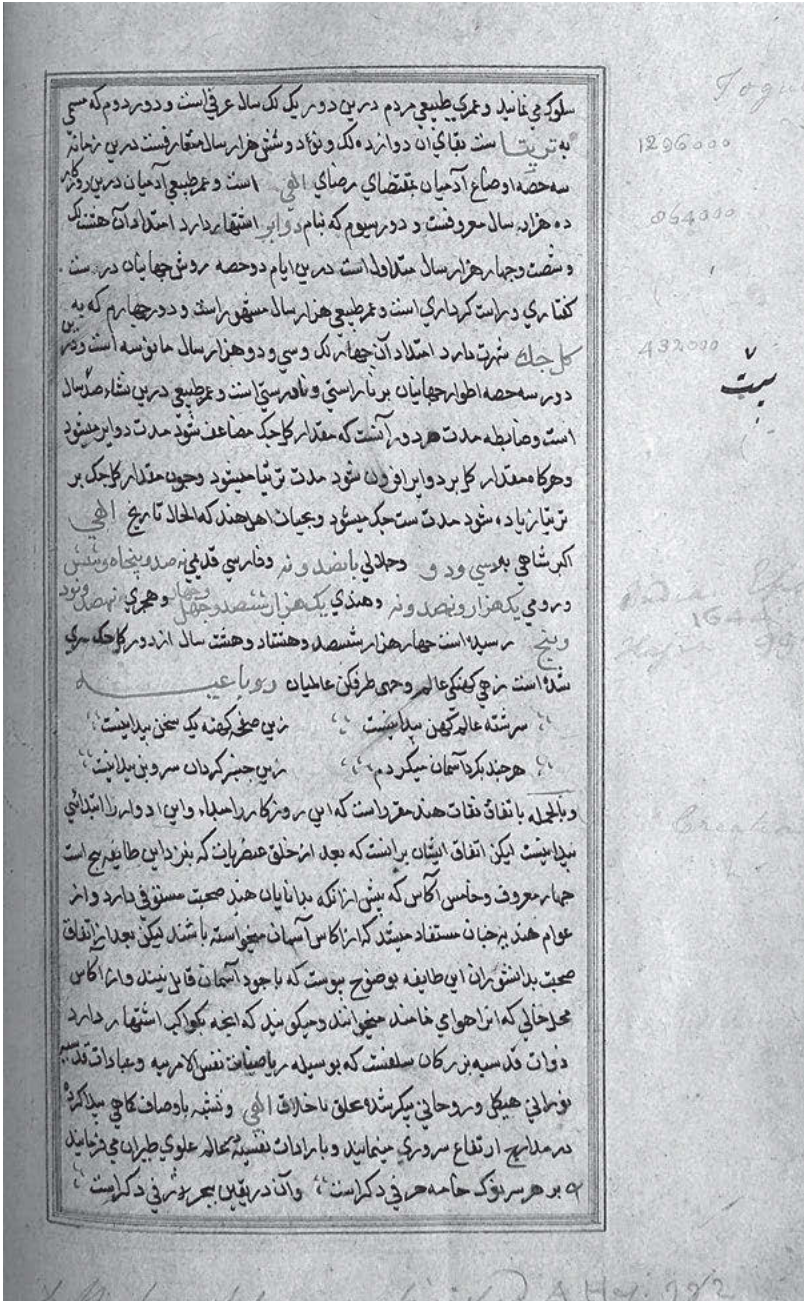 سلوک می نمایند و عمری طبیعی مردم درین دور یک لک سال عرفی است و دور دوم که مسمی
به تریتا ست بقای ان دوازده لک و نود و شش هزار سال متعارفست درین زمانه
سه حصه اوضاع آدمیان بمقتضای رضای الهی است و عمر طبیعی آدمیان درین روزکار
ده هزار سال معروفست و دور سیوم که بنام دواپر اشتهار دارد امتداد آن هشت لک
و شصت و چهار هزار سال متداول است درین ایام دو حصه روش جهانیان در ست
کفتاری و راست کرداری است و عمر طبیعی هزار سال مشهور است و دور چهارم که به
کل جک شهرت دارد امتداد آن چهار لک و سی و دو هزار سال مانوسه است و درین
دور سه حصه اطوار جهانیان بر ناراستی و نادرستی است و عمر طبیعی درین نشاء صد سال
است و ضابطه مدت هر دور آنست که مقدار کل جک مضاعف شود مدت دواپر میشود
و هرکاه مقدار کل بر دواپر افزون شود مدت تریتا میشود و چون مقدار کل جک بر
تریتا زیاده شود مدت ست جک میشود و بحساب اهل هند که الحال تاریخ الهی
اکبر شاهی به سی و دو و جلالی پانصد و نه و فارسی قدیمی نه صد و پنجاه و شش
و رومی یک هزار و نهصد و نه و هندی یک هزار ششصد و چهل و چهار و هجری نهصد و نود
و پنج رسیده است چهار هزار ششصد و هشتاد و هشت سال از دور کل جک سپری
شده است زهی کهنکی عالم و خهی طرفکی عالمیان رباعیه
سر رشته عالم کهن پیدا نیست زین صفحه کهنه یک سخن پیدا نیست
هر چند بکرد آسمان میکردم زین چنبر کردان سر و بن پیدا نیست
و بالجمله باتفاق ثقات هند مقرر است که این روزکار را مبداء و این ادوار را ابتدائی
پیدا نیست لیکن اتفاق ایشان برانست که بعد از خلق عنصریات که بنزد این طایفه پنج است
چهار معروف و خامس آکاس که پیش ازانکه بدانایان هند صحبت مستوفی دارد و از
عوام هند بر چنان مستفاد میشد که از اکاس آسمان میخواسته باشند لیکن بعد از اتفاق
صحبت بدانشوران این طایفه بوضوح پیوست که با وجود آسمان قایل نیند و از آکاس
محل خالی که انرا هوا می نامند میخوانند و میکویند که انچه بکواکب اشتهار دارد
ذوات قدسیه بزرکان سلفست که بوسیله ریاضیات نفس الامریه و عبادات قدسیه
نورانی هیکل و روحانی پیکر شده تخلق باخلاق الهی و تشبه باوصاف کماهی پیدا کرده
در مدارج ارتفاع سروری مینمایند و بارادات نفسیه بعالم علوی طیران می فرمایند
بر هر سر نوک خامه حرفی دکر است و آن در یقین بحر ژرفی دکر است
1296000
864000
432000
بیت
1644
Creation